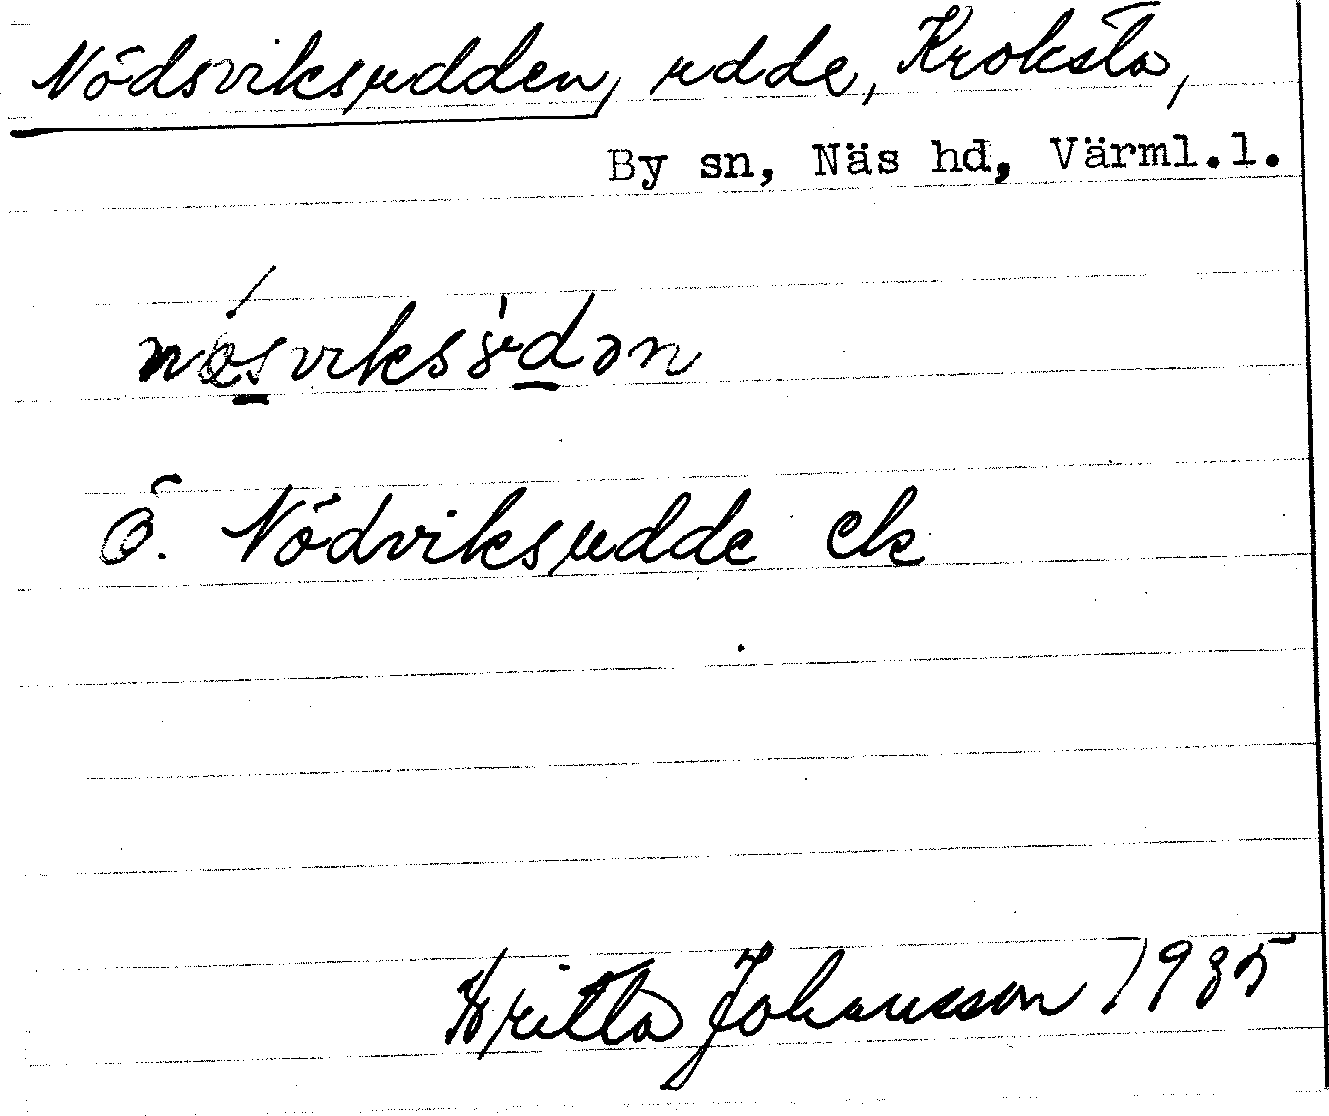 Nödsviksudden, udde, Kroksta,
By sn, Näs hd, Värml.l.
Ö. Nödviksudde ek
Britta Johansson 1935